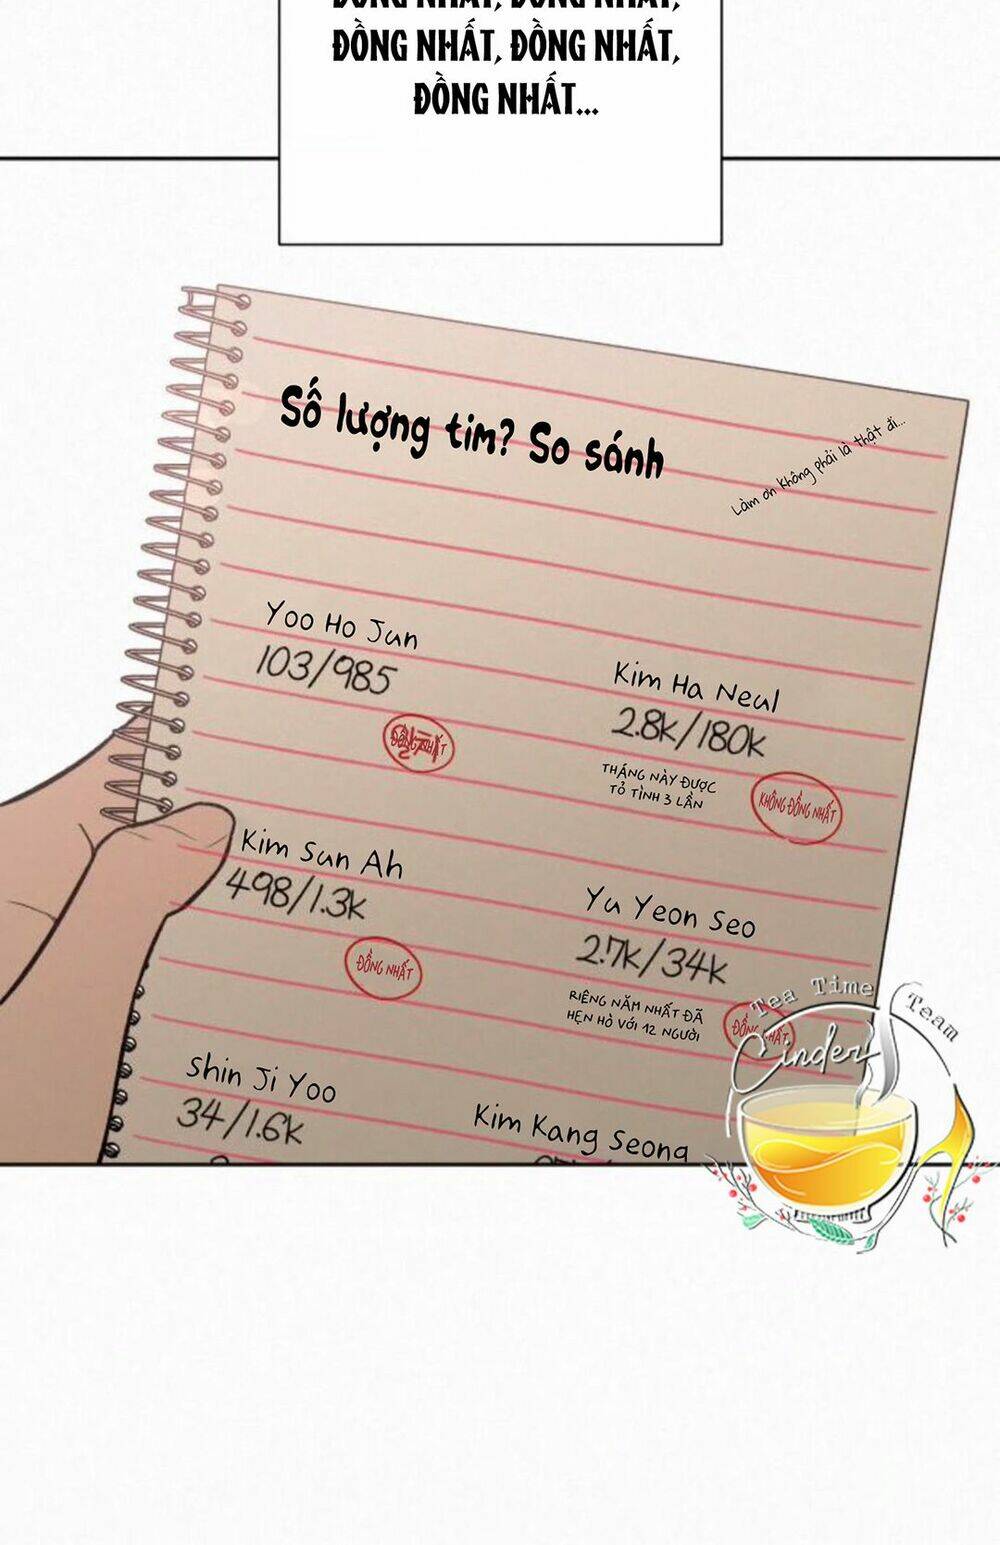 ĐỒNG NHẤT, ĐỒNG NHẤT,
ĐỒNG NHẤT, ĐỒNG NHẤT,
ĐỒNG NHẤT...
Số lượng tim? So sánh
Làm ơn không phải là thật đi...
Yoo Ho Jun
103/985
Kim Ha Neul
2.8k/180k
THÁNG NÀY ĐƯỢC
TỎ TÌNH 3 LẦN
KHÔNG ĐỒNG NHẤT
Kim Sun Ah
498/1.3k
ĐỒNG NHẤT
Yu Yeon Seo
2.7k/34k
RIÊNG NĂM NHẤT ĐÃ
HẸN HÒ VỚI 12 NGƯỜI
ĐỒNG NHẤT
Shin Ji Yoo
34/1.6k
Kim Kang Seong
Tea Time Team
Cinder